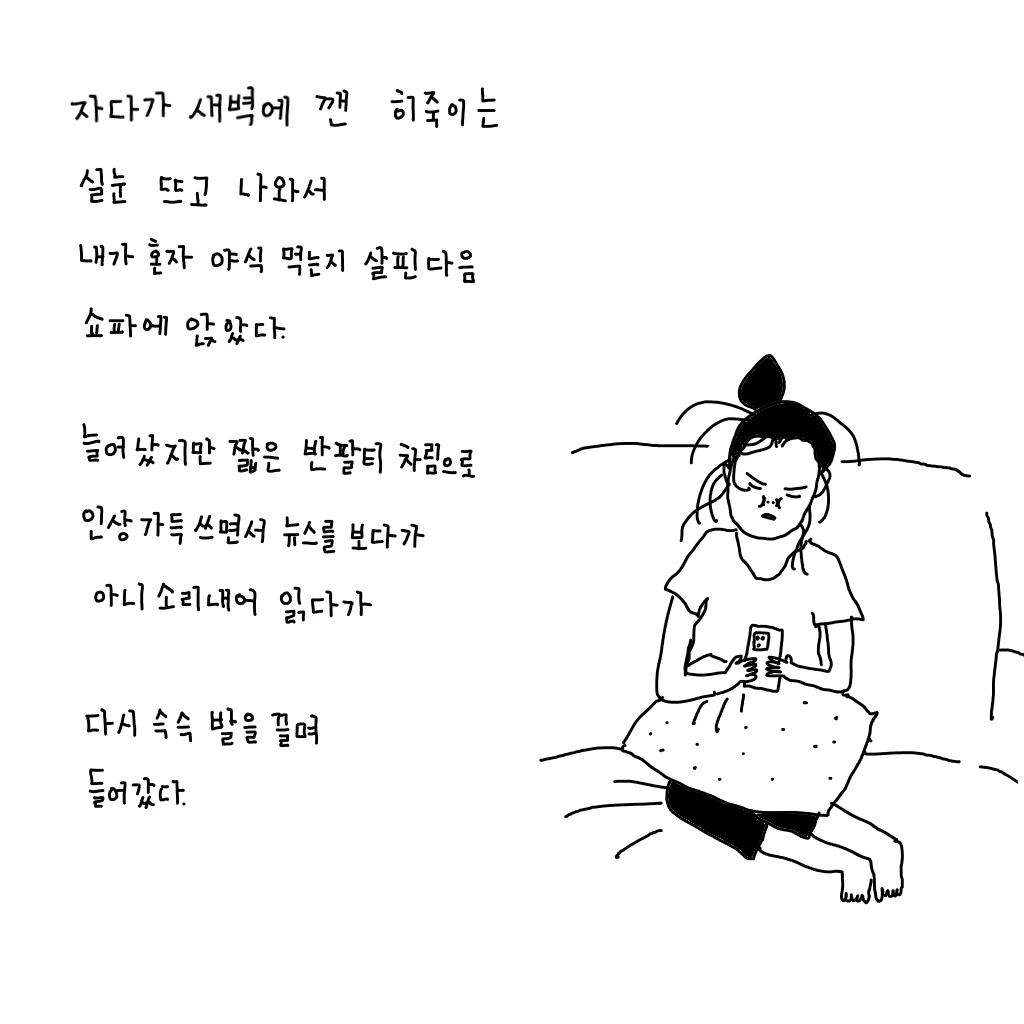 자다가 새벽에 깬 히죽이는
실눈 뜨고 나와서
내가 혼자 야식 먹는지 살핀다음
쇼파에 앉았다.
늘어났지만 짧은 반팔티 차림으로
인상 가득 쓰면서 뉴스를 보다가
아니 소리내어 읽다가
다시 슥슥 발을 끌며
들어갔다.